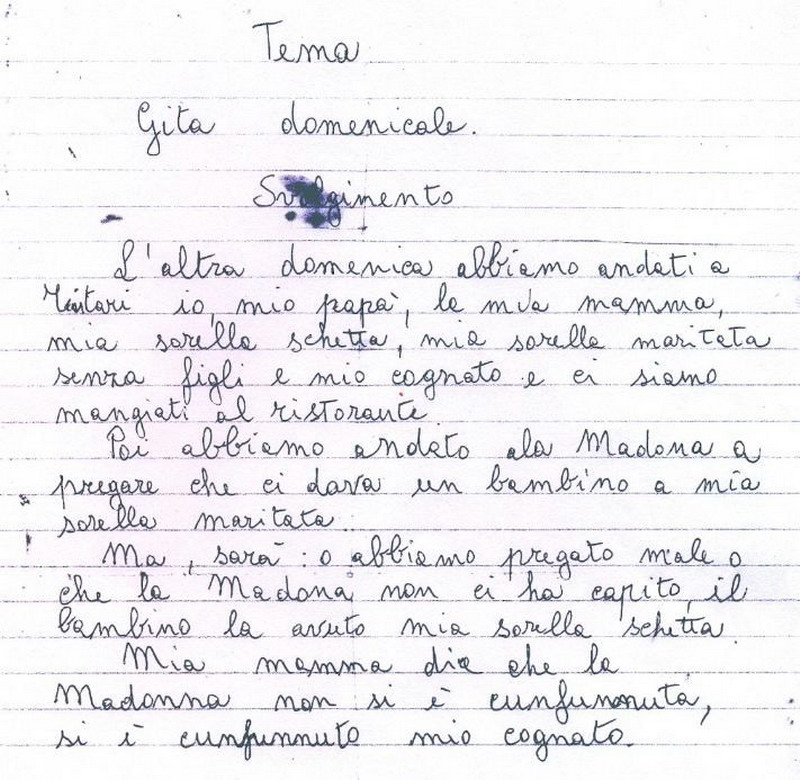 Tema
Gita domenicale.
Svolgimento
L'altra domenica abbiamo andati a
Tintari io, mio papà, le mia mamma,
mia sorella schetta, mia sorella maritata
senza figli e mio cognato e ci siamo
mangiati al ristorante.
Poi abbiamo andato ala Madona a
pregare che ci dava un bambino a mia
sorella maritata.
Ma, sarà: o abbiamo pregato male o
che la Madona non ci ha capito, il
bambino la avuto mia sorella schetta.
Mia mamma dice che la
Madonna non si è cunfunnuta,
si è cunfunnuto mio cognato.